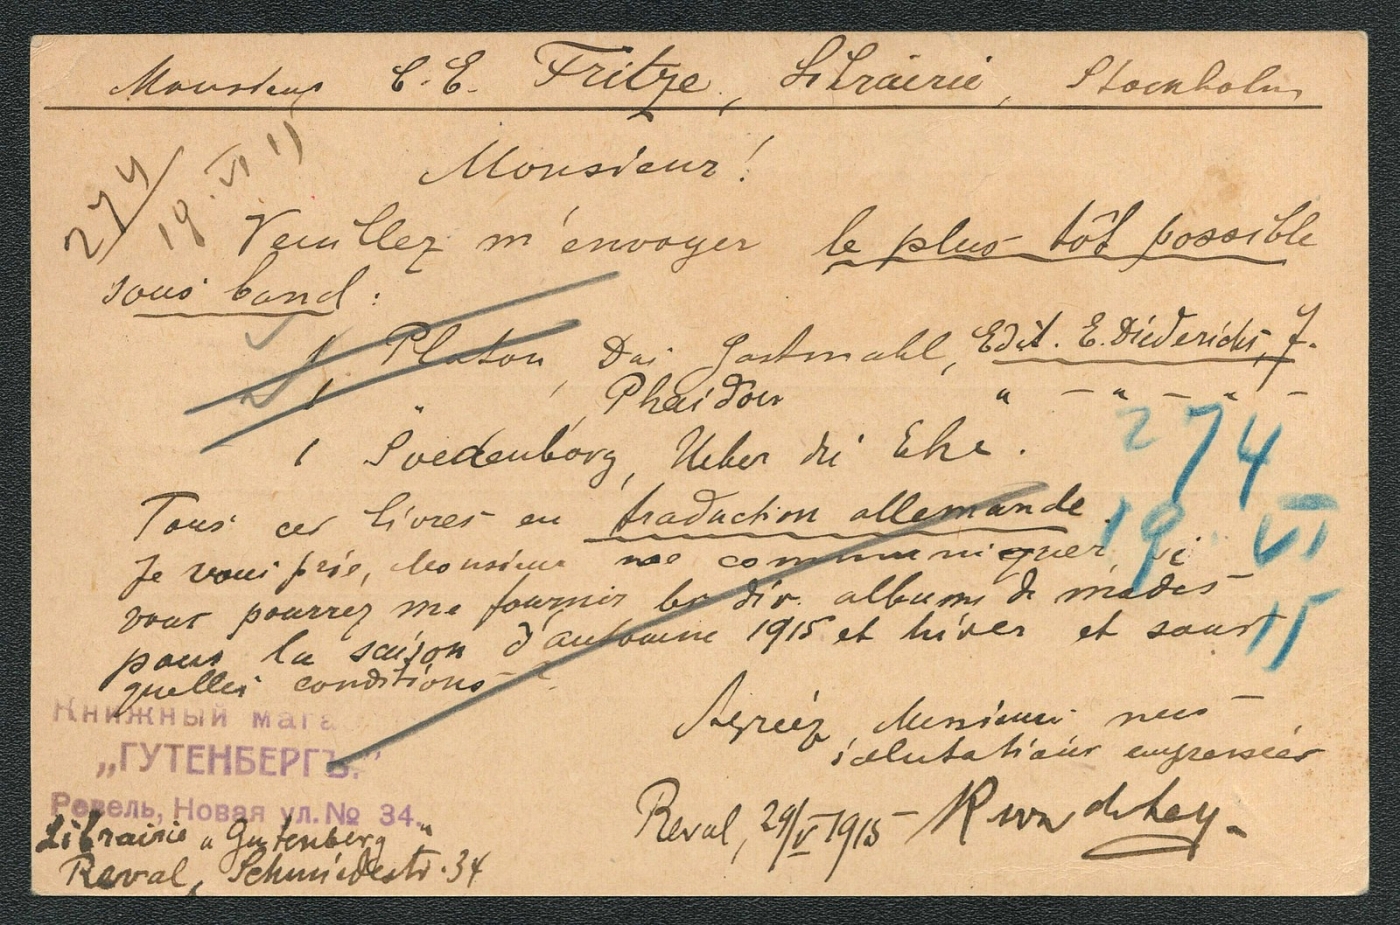 Monsieur C. E. Fritze, Librairie, Stockholm
274/19.VI 15
Monsieur!
Veuillez m'envoyer le plus tôt possible
sous band:
1 Platon, Das Gastmahl, Edit. E. Diederichs, J.
1 " , Phaidon " — " — " —
1 Svedenborg, Ueber die Ehe.
274
Tous ces livres en traduction allemande.
19. VI
Je vous prie, Monsieur me communiquer, si
vous pourrez me fournir les div. albums de modes
15
pour la saison d'automne 1915 et hiver et sous
quelles conditions.
Agréez, Monsieur nos
salutations empressées
Книжный мага
„ГУТЕНБЕРГЪ."
Ревель, Новая ул. № 34.
Reval, 29/V 1915
Librairie "Gutenberg"
Reval, Schmiedestr. 34